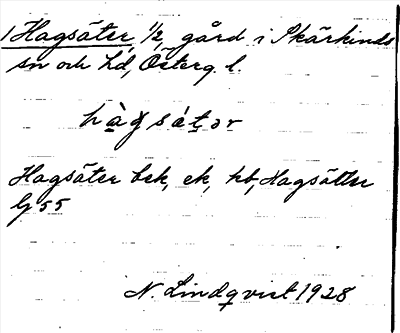 1 Hagsäter, 1/2 gård i Skärkinds
sn och hd, Österg. l.
hàgsátər
Hagsäter bek, ek, kb, Hagsätter
Gj 55
N. Lindqvist 1928